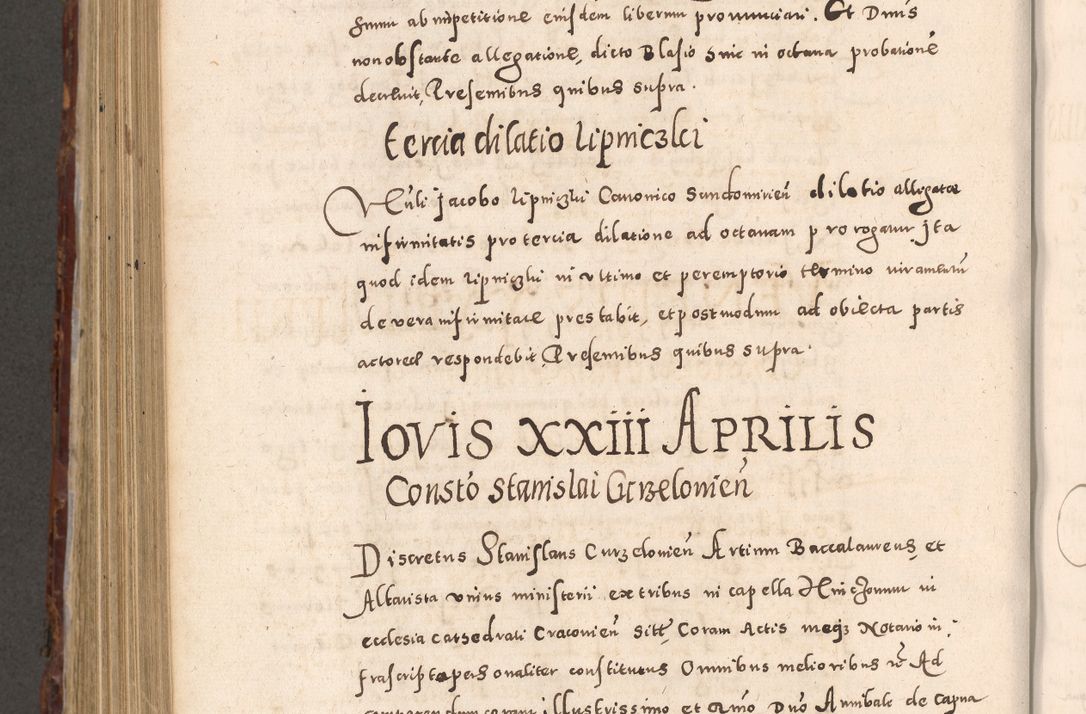 suum ab impetitione eiusdem liberum pronunciari. Et Dnus
non obstante allegatione, dicto Blasio Smic in octava probationē
decrevit, Presentibus quibus supra.
tercia dilatio Lipniczki
Vnli Jacobo Lipniczki Canonico Sandomirien̄ dilatio allegatae
infirmitatis pro tercia dilatione ad octavam prorogatur Jta
quod idem Lipniczki in vltimo et peremptorio termino iuramentū
de vera infirmitate prestabit, et postmodum ad obiecta partis
actoree respondebit, Presentibus quibus supra.
Iovis XXIII Aprilis
Constō Stanislai Gcrzelovien̄
Discretus Stanislaus Curzelovien̄ Artium Baccalaureus, et
Altarista vnius ministerii ex tribus in capella
ecclesia catedrali Cracovien̄ Coram Actis meqz Notario in
frascripto personaliter constitutus Omnibus melioribus Ad
comparendum coram illustrissimo et Dnō Annibale de Capua